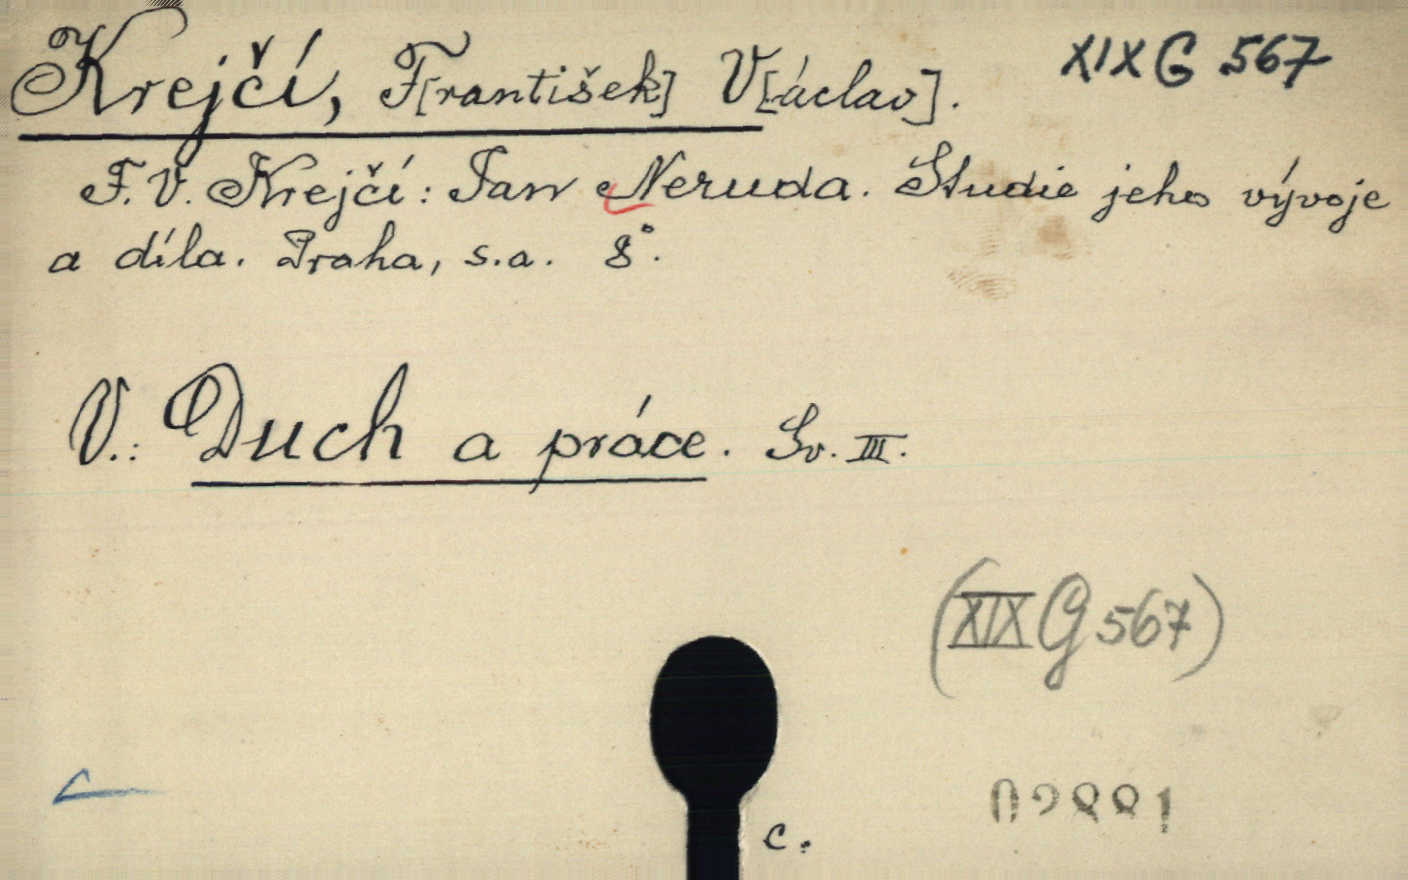 Krejčí, F[rantišek] V[áclav]. XIX G 567
F. V. Krejčí: Jan Neruda. Studie jeho vývoje
a díla. Praha, s.a. 8°.
V.: Duch a práce. Sv. III.
(XIX G 567)
c.